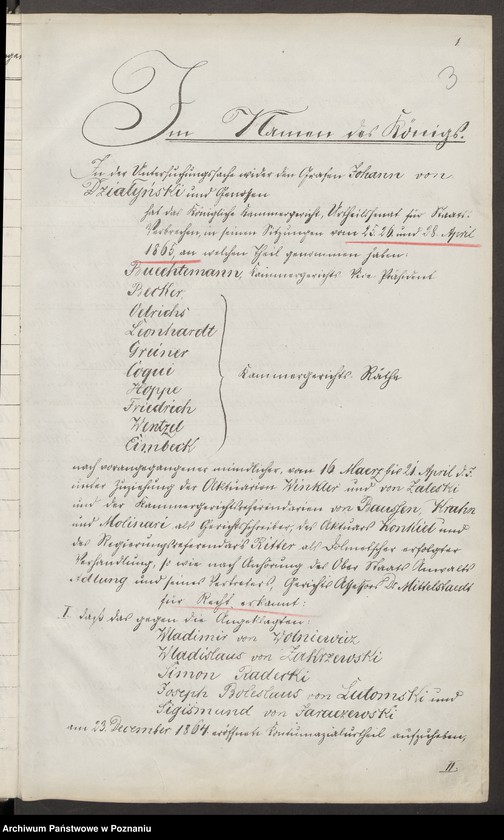 1
3
Im Namen des Königs.
In der Untersuchungssache wider den Grafen Johann von
Dzialynski und Genossen
hat das Königliche Kammergericht, Urtheilssenat für Staats-
Verbrechen, in seinen Sitzungen vom 25. 26. und 28. April
1865, an welchen Theil genommen haben:
Buechtemann, Kammergerichts Vice Präsident
Becker
Oelrichs
Leonhardt
Greiner
Coqui
Hoppe
Friedrich
Wentzel
Cimbeck
Kammergerichts-Räthe
nach vorangegangener mündlicher, vom 16. Maerz bis 21. April d. J.
unter Zuziehung der Aktuarien Winkler und von Zaleski
und der Kammergerichtsreferendarien von Baussen, Krahn
und Molinari als Gerichtsschreiber, des Aktuars Konkiel und
des Regierungsreferendars Ritter als Dolmetscher erfolgter
Verhandlung, so wie nach Anhörung des Ober Staats Anwalts
Adlung und seines Vertreters, Gerichts Assessors Dr. Mittelstaedt
für Recht erkannt:
I. daß das gegen die Angeklagten:
Wladimir von Wolniewicz
Wladislaus von Zakrzewski
Simon Radecki
Joseph Boleslaus von Lutomski und
Sigismund von Jaraczewski
am 23. December 1864 eröffnete Kontumazialurtheil aufzuheben,
II.
Archiwum Państwowe w Poznaniu